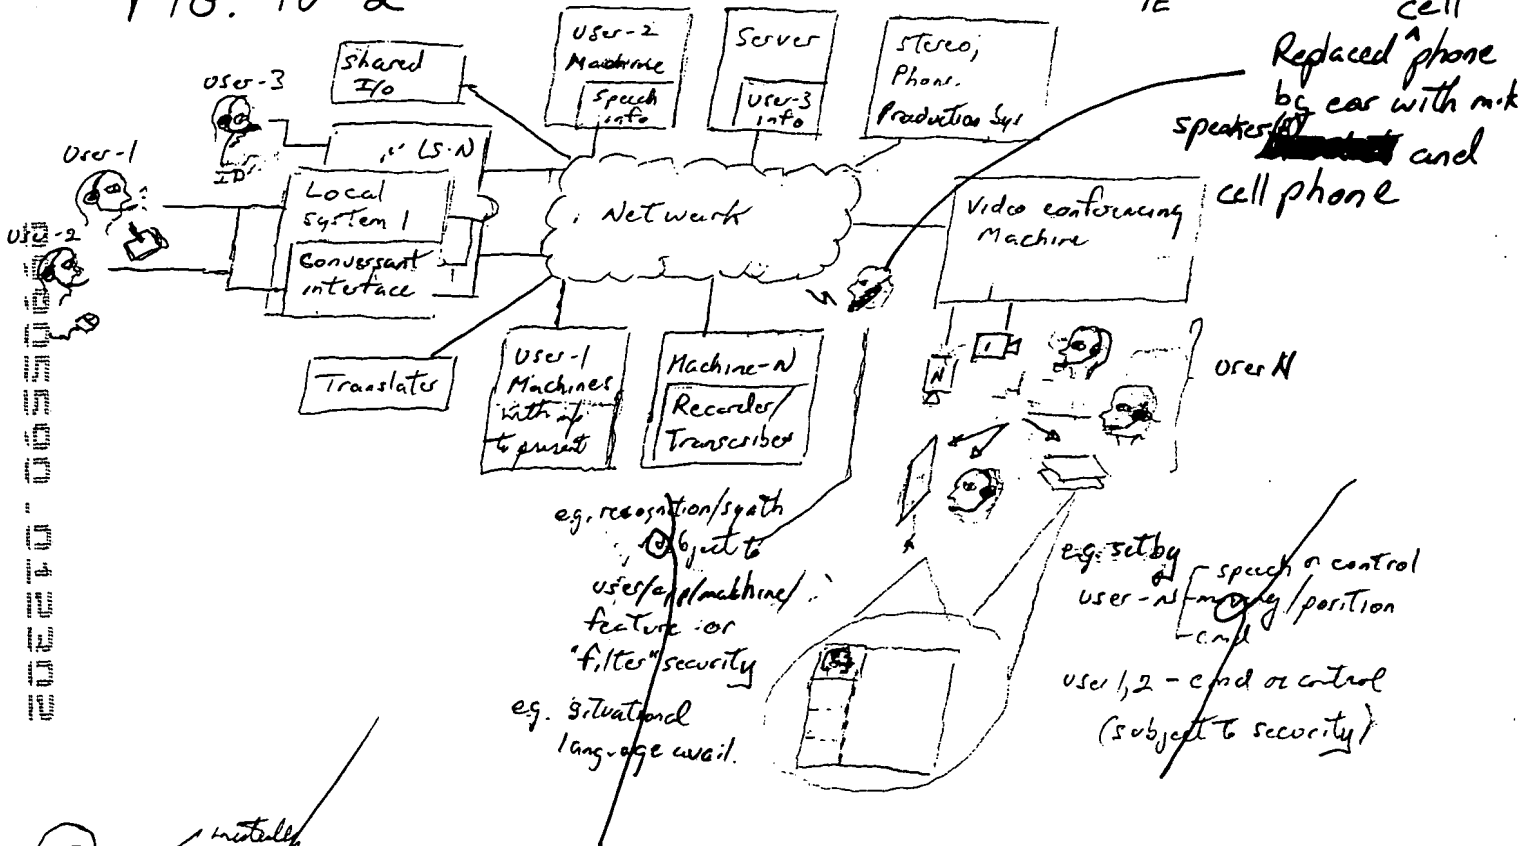 FIG. 10-2
IE
cell
Replaced ^ phone
by ear with mik
speaker(s)
and
cell phone
User-3
ID
User-1
User-2
Shared
I/O
User-2
Machine
Speech
info
Server
User-3
info
Stereo,
Phone.
Production Sys
LS-N
Local
system 1
Conversant
interface
Network
Video conferencing
Machine
Translator
User-1
Machines
with info
to present
Machine-N
Recorder/
Transcriber
1
N
User N
e.g. recognition/synth
subject to
user/app/machine/
feature or
"filter" security
e.g. situational
language avail.
e.g. set by
user-N
speech or control
moving/position
cmd
user 1,2 - cmd or control
(subject to security)